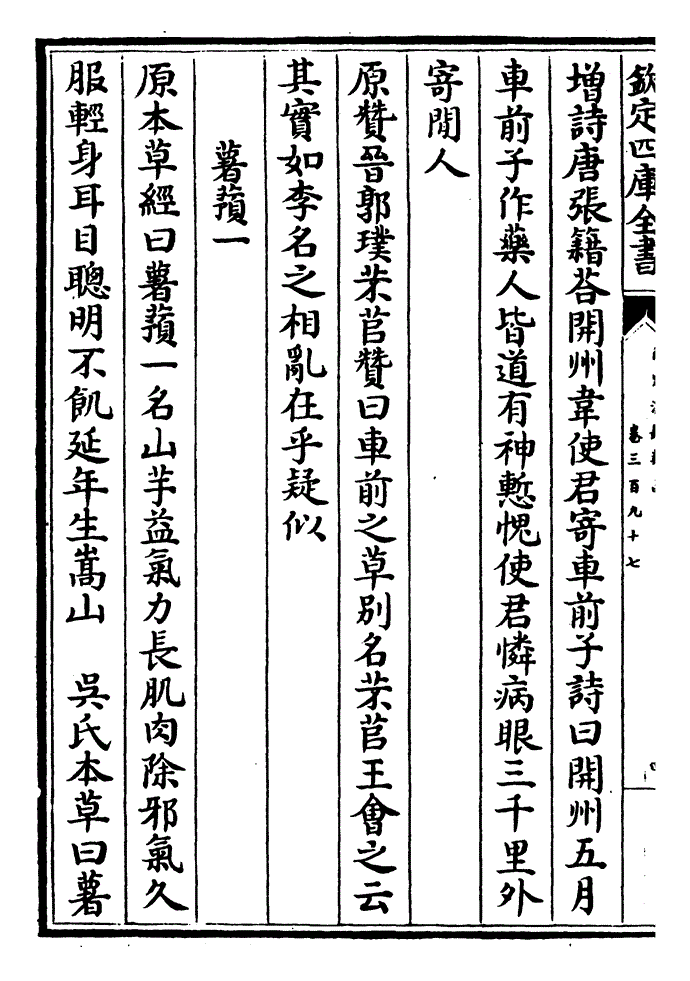 欽定四庫全書
卷三百九十七
增詩唐張籍荅開州韋使君寄車前子詩曰開州五月
車前子作藥人皆道有神慙愧使君憐病眼三千里外
寄閒人
原贊晉郭璞芣苢贊曰車前之草别名芣苢王會之云
其實如李名之相亂在乎疑似
薯蕷一
原本草經曰薯蕷一名山芋益氣力長肌肉除邪氣久
服輕身耳目聰明不飢延年生嵩山　吳氏本草曰薯